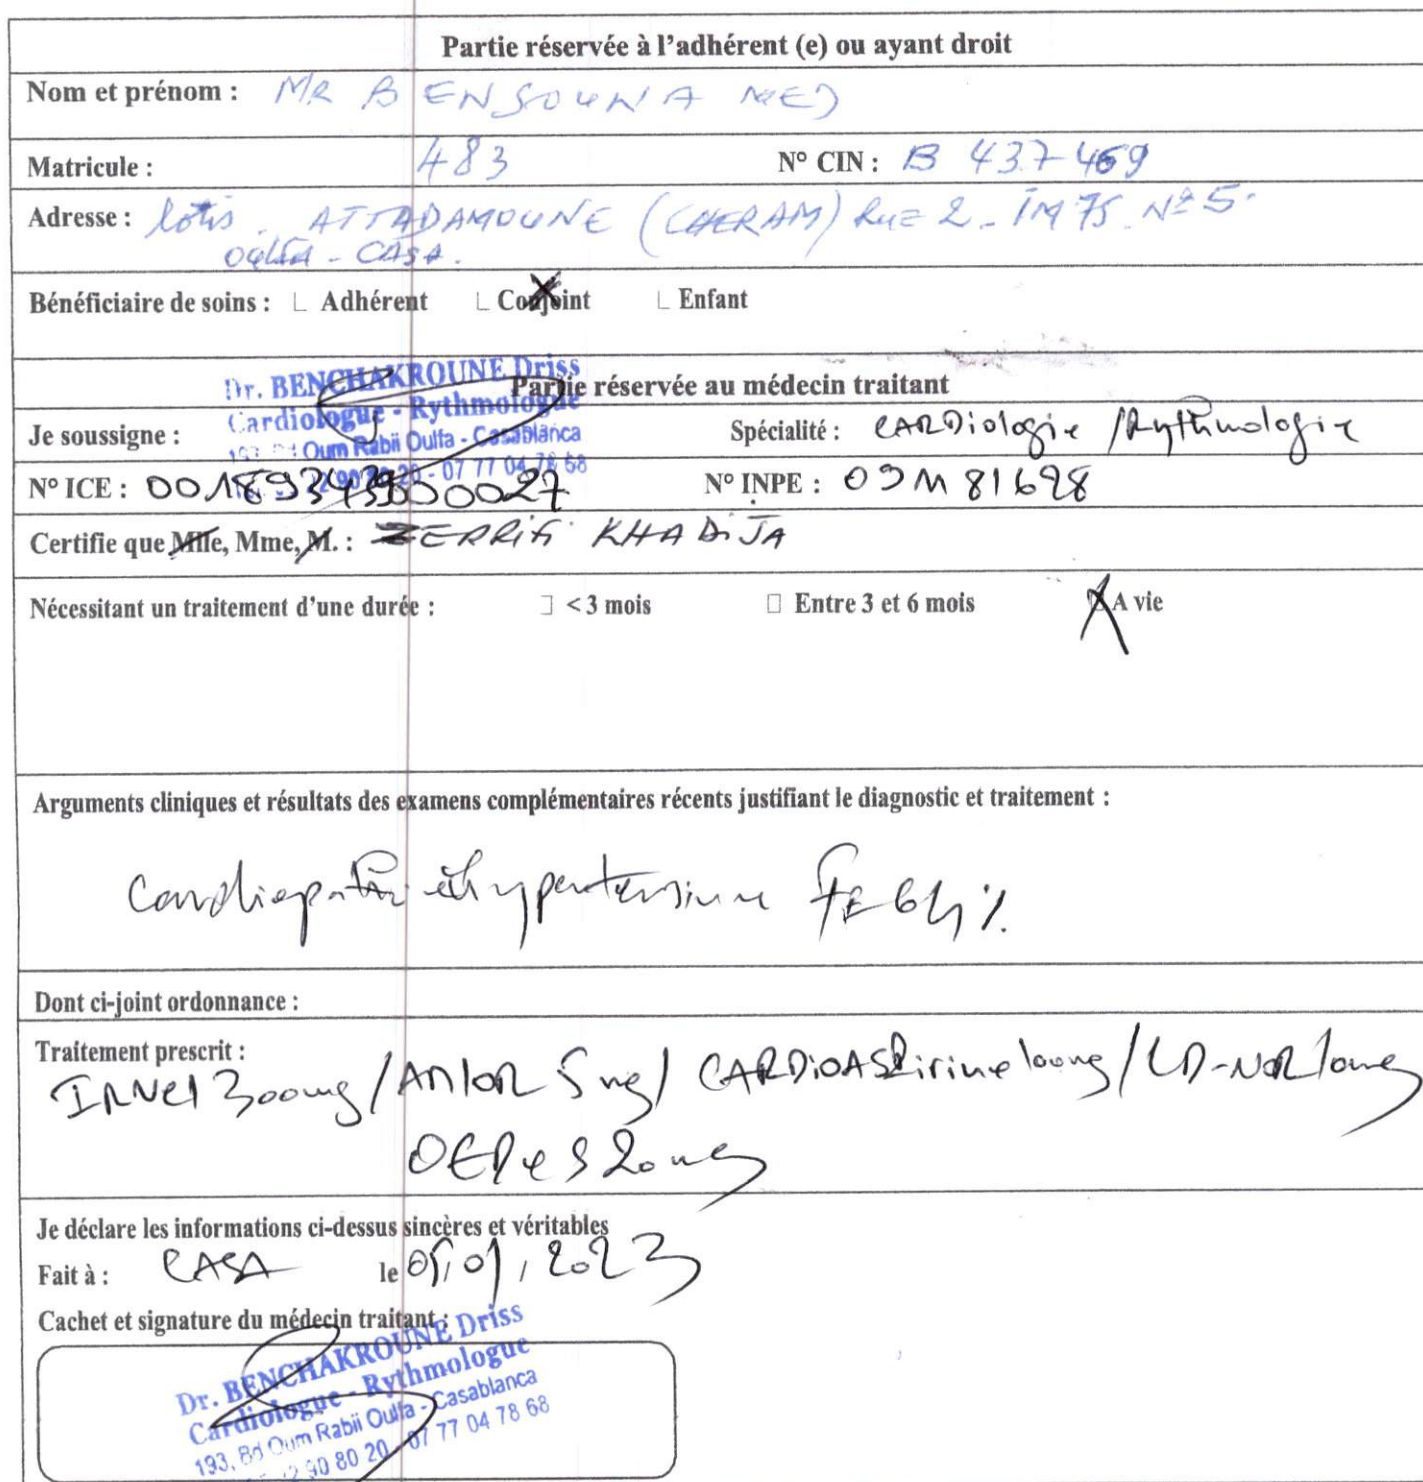 Partie réservée à l'adhérent (e) ou ayant droit
Nom et prénom : MR BENSOUNA MED
Matricule : 483 N° CIN : B 437469
Adresse : lotis. ATTADAMOUNE (CHERAM) RUE 2 - IM 75 N° 5.
Oulfa - CASA.
Bénéficiaire de soins : Adhérent Conjoint Enfant
Dr. BENCHAKROUNE Driss
Partie réservée au médecin traitant
Cardiologue - Rythmologue
Je soussigne : Spécialité : CARDiologie / Rythmologie
193, Bd Oum Rabii Oulfa - Casablanca
90 20 - 07 77 04 78 68
N° ICE : N° INPE : 09M81698
Certifie que Mlle, Mme, M. : ZERRIFI KHADIJA
Nécessitant un traitement d'une durée : < 3 mois Entre 3 et 6 mois A vie
Arguments cliniques et résultats des examens complémentaires récents justifiant le diagnostic et traitement :
Cardiopathie hypertensive FE 64%
Dont ci-joint ordonnance :
Traitement prescrit :
IRVEL 300mg / ANLOR 5mg / CARDIOASPIRINE 100mg / LD-NOR 10mg
OEDES 20mg
Je déclare les informations ci-dessus sincères et véritables
Fait à : CASA le 05/01/2023
Cachet et signature du médecin traitant :
Dr. BENCHAKROUNE Driss
Cardiologue - Rythmologue
193, Bd Oum Rabii Oulfa - Casablanca
90 80 20 - 07 77 04 78 68